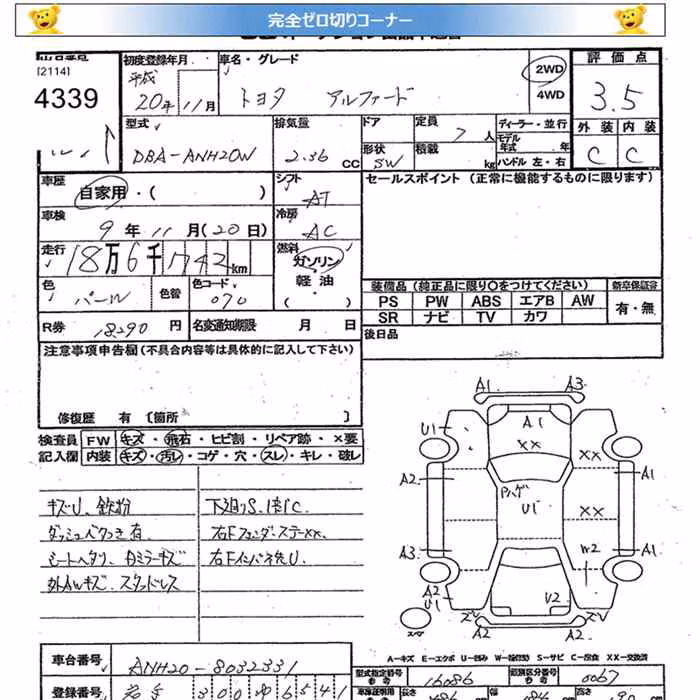 完全ゼロ切りコーナー
[2114]
4339
初度登録年月
平成
20年 11月
車名・グレード
トヨタ アルファード
2WD
4WD
評価点
3.5
外装 内装
C C
型式
DBA-ANH20W
排気量
2.36 CC
ドア
形状
5W
定員
7人
積載
kg
ディーラー・並行
モデル年式 年
ハンドル 左・右
車歴
自家用・( )
シフト
AT
セールスポイント (正常に機能するものに限ります)
車検
9年 11月(20日)
冷房
AC
走行
18万6千742km
燃料
ガソリン・軽油・( )
色
パール
色替
色コード
070
装備品 (純正品に限り○をつけてください)
新車保証書
PS PW ABS エアB AW
SR ナビ TV カワ
有・無
R券 18290円
名変通知期限 月 日
後日品
注意事項申告欄 (不具合内容等は具体的に記入して下さい)
修復歴 有 〔箇所 〕
検査員記入欄
FW キズ・飛石・ヒビ割・リペア跡・×要
内装 キズ・汚レ・コゲ・穴・スレ・キレ・破レ
キズU、鉄粉
ダッシュベタつき有
シートヘタリ、
外AWキズ スタッドレス
下廻りS、
右Fフェンダーステーxx、
右Fインパネ先U.
A1 A3
U1 A1
XX XX
A2 A1
Pハゲ
U1 XX
A3 W2 A1
A2
U1 U2
A2 A2
スペア
A-キズ E-エクボ U-凹み S-サビ C-腐食 XX-交換済
車台番号
ANH20-8032331
型式指定番号
16086
類別区分番号
0067
登録番号
300
6541
長さ
高さ